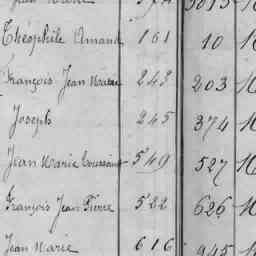 Jean Marie
Théophile Amand 161 10
François Jean Marie 243 203
Joseph 245 374
Jean Marie Toussaint 549 527
François Jean Pierre 522 626
Jean Marie 616 945